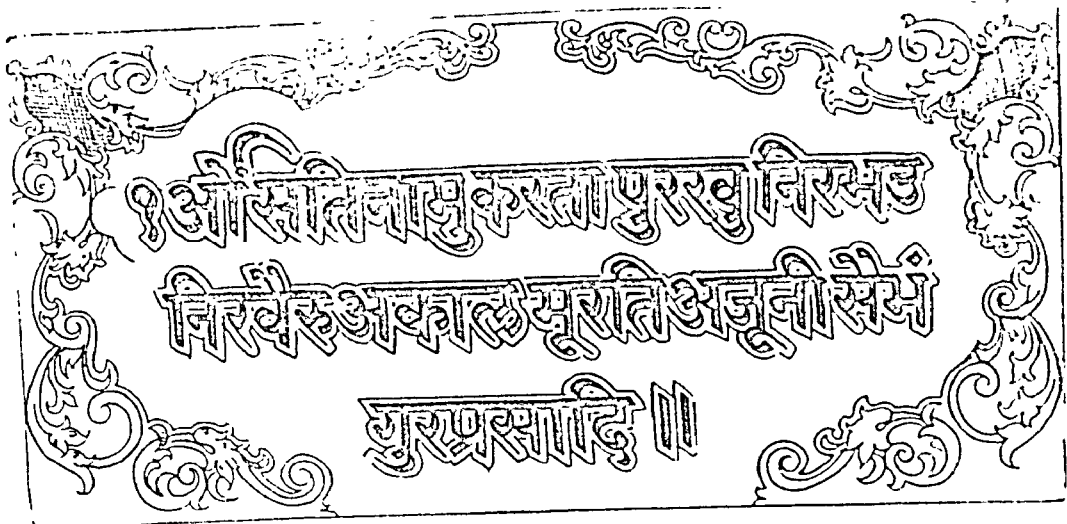 १ओ सतिनामु करता पुरखु निरभउ
निरवैरु अकाल मूरति अजूनी सैभं
गुरप्रसादि ॥